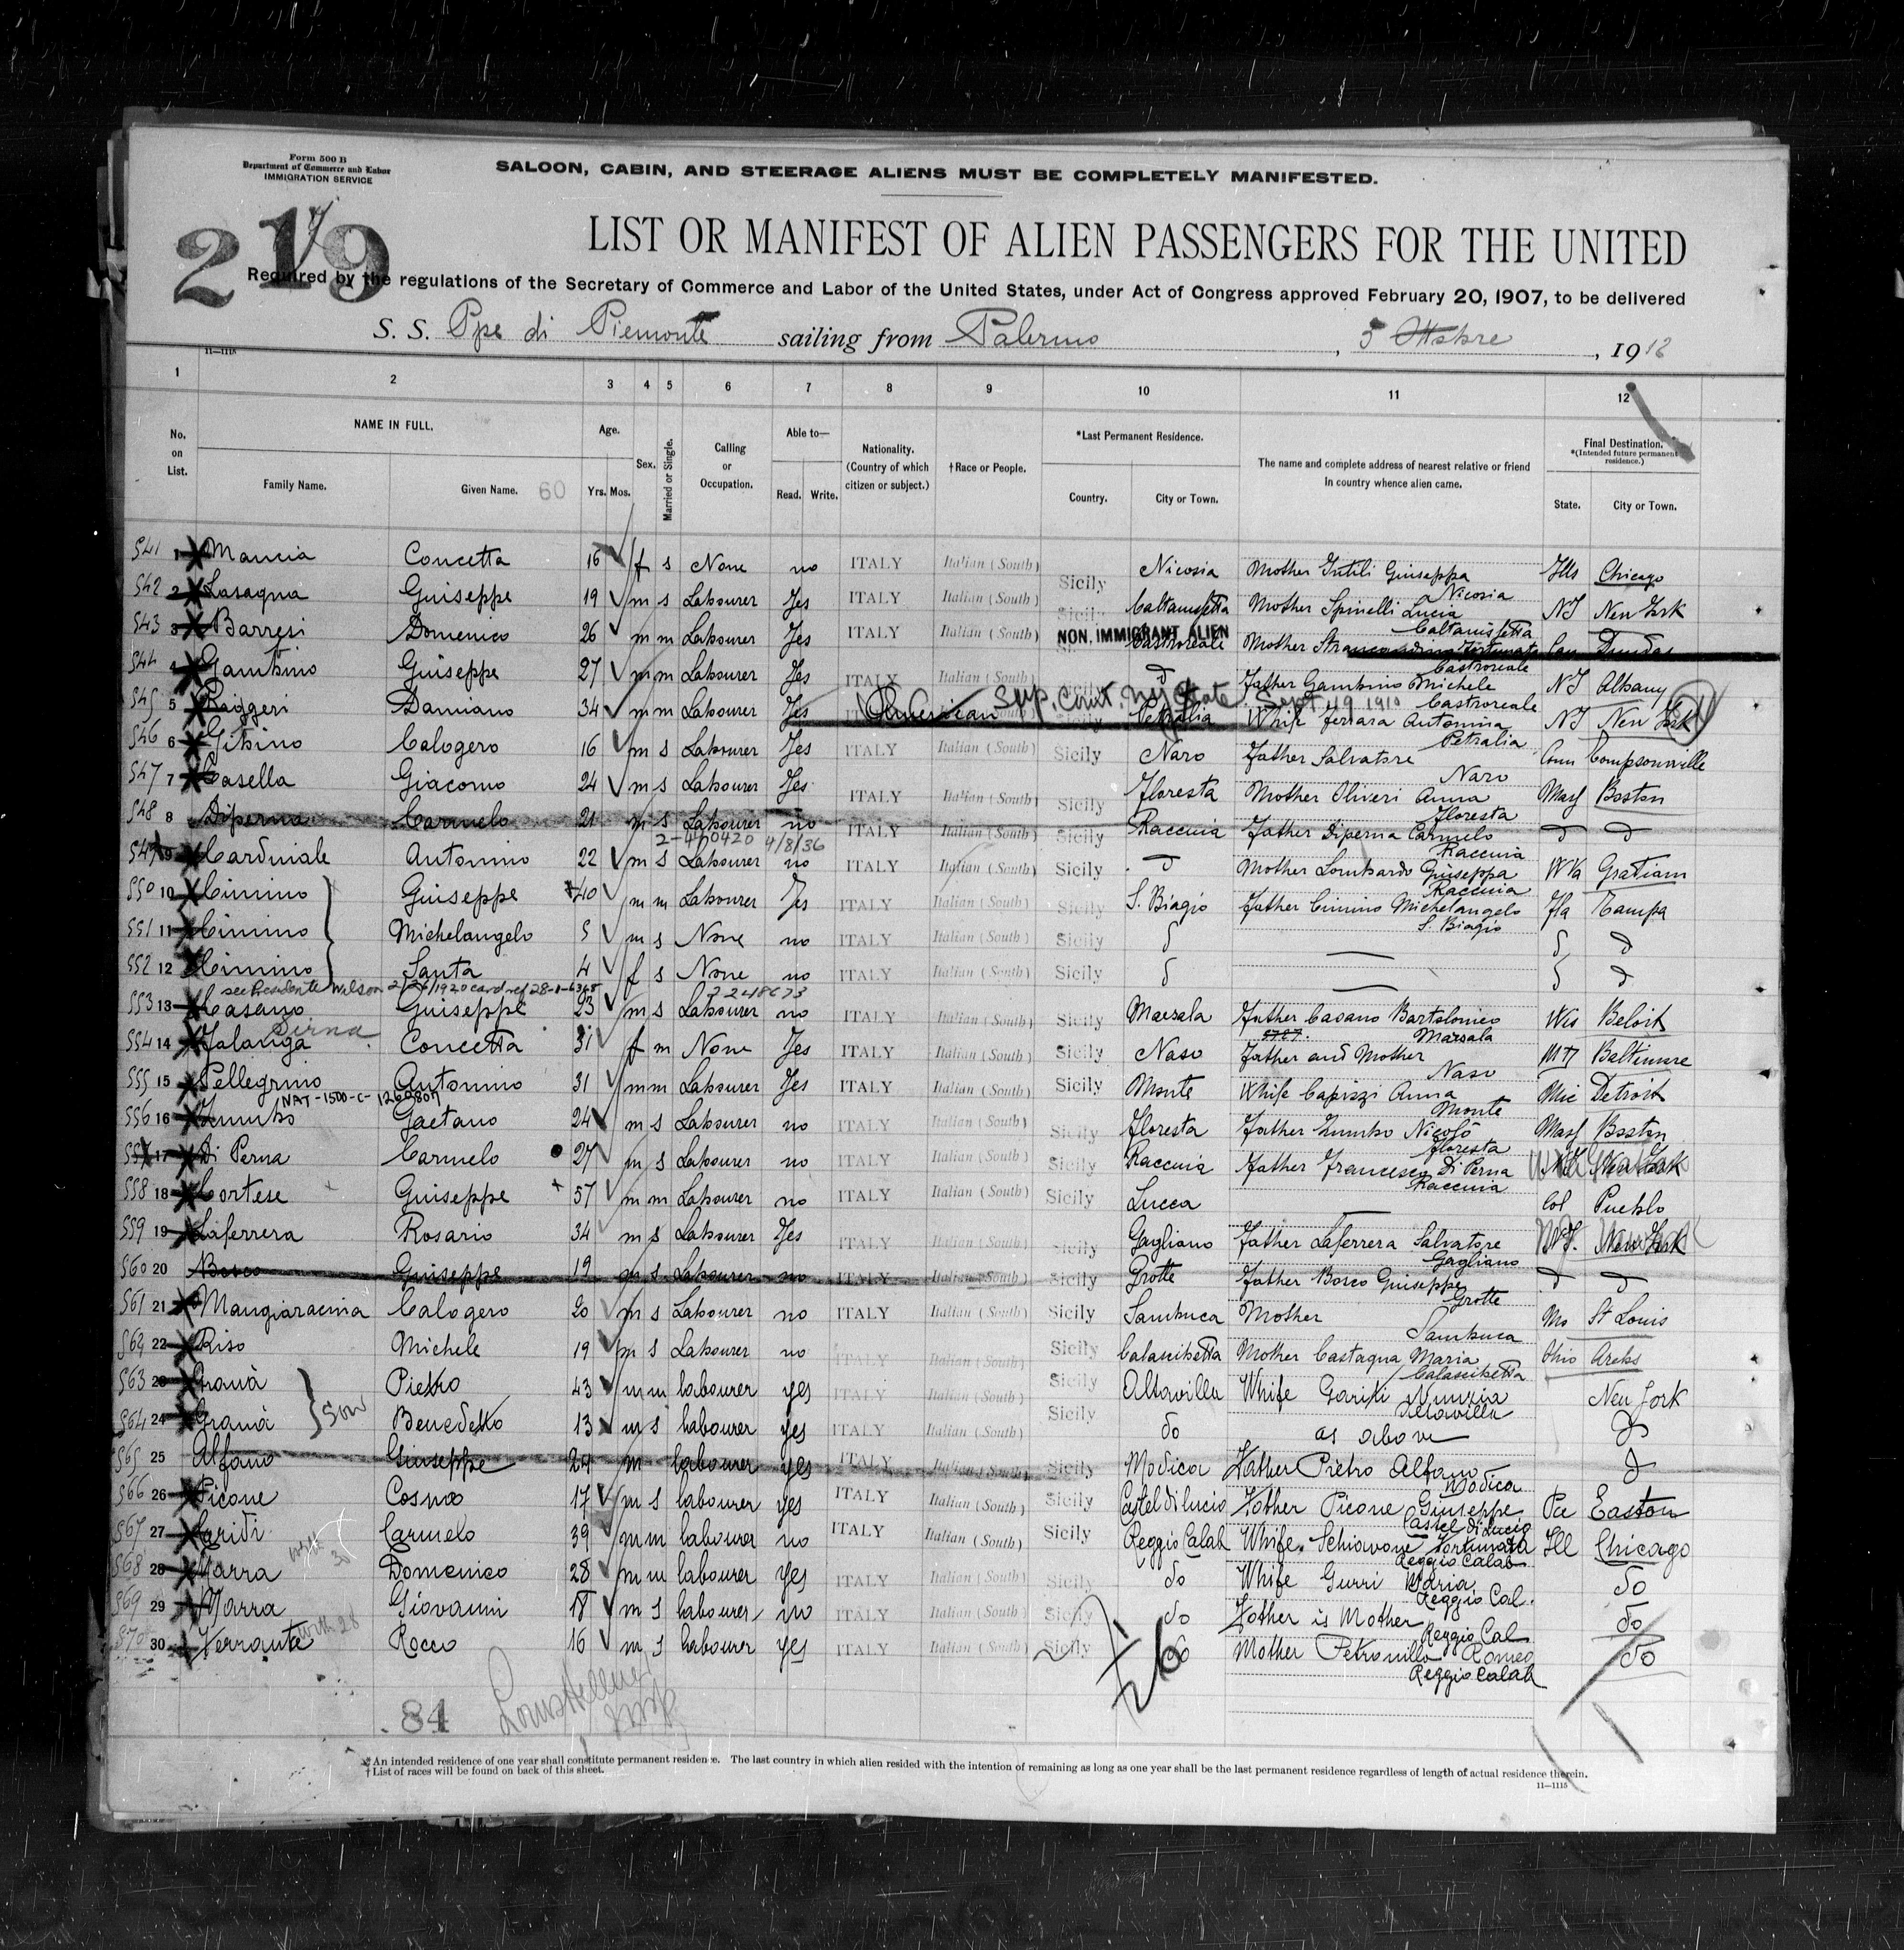 Form 500 B
Department of Commerce and Labor
IMMIGRATION SERVICE
SALOON, CABIN, AND STEERAGE ALIENS MUST BE COMPLETELY MANIFESTED.
219
LIST OR MANIFEST OF ALIEN PASSENGERS FOR THE UNITED
Required by the regulations of the Secretary of Commerce and Labor of the United States, under Act of Congress approved February 20, 1907, to be delivered
S. S. Ppe di Piemonte sailing from Palermo, 5 Ottobre, 1912
11—1115
1 2 3 4 5 6 7 8 9 10 11 12
No. on List. NAME IN FULL. Family Name. Given Name. 60 Age. Yrs. Mos. Sex. Married or Single. Calling or Occupation. Able to— Read. Write. Nationality. (Country of which citizen or subject.) †Race or People. *Last Permanent Residence. Country. City or Town. The name and complete address of nearest relative or friend in country whence alien came. Final Destination. *(Intended future permanent residence.) State. City or Town.
541 1 Mancia Concetta 16 f s None no ITALY Italian (South) Sicily Nicosia Mother Intili Giuseppa Nicosia Ills Chicago
542 2 Lasagna Guiseppe 19 m s Labourer Yes ITALY Italian (South) Sicily Caltanissetta Mother Spinelli Lucia Caltanissetta NJ New York
543 3 Barresi Domenico 26 m m Labourer Yes ITALY Italian (South) NON. IMMIGRANT ALIEN Castroreale Mother Fortunata Castroreale Can Dundas
544 4 Gambino Guiseppe 27 m m Labourer Yes ITALY Italian (South) Sicily d Father Gambino Michele Castroreale NJ Albany
545 5 Raggeri Damiano 34 m m Labourer Yes American Sup. Court. Ny State Sept 19 1910 Petralia Whife Ferrara Antonina Petralia NJ New York
546 6 Gibino Calogero 16 m s Labourer Yes ITALY Italian (South) Sicily Naro Father Salvatore Naro Conn Tompsonville
547 7 Casella Giacomo 24 m s Labourer Yes ITALY Italian (South) Sicily Floresta Mother Oliveri Anna Floresta Mass Boston
548 8 Diperna Carmelo 21 m s Labourer no ITALY Italian (South) Sicily Raccuia Father Diperna Carmelo Raccuia d d
2-400420 4/8/36
549 9 Cardinale Antonino 22 m s Labourer no ITALY Italian (South) Sicily d Mother Lombardo Giuseppa Raccuia W Va Gratiam
550 10 Cimino Guiseppe 40 m m Labourer Yes ITALY Italian (South) Sicily S. Biagio Father Cimino Michelangelo S. Biagio Fla Tampa
551 11 Cimino Michelangelo 5 m s None no ITALY Italian (South) Sicily d — d d
552 12 Cimino Santa 4 f s None no ITALY Italian (South) Sicily d — d d
see Presidente Wilson 2/26/1920 card ref 28-1-6348
553 13 Casano Guiseppe 23 m s Labourer no ITALY Italian (South) Sicily Marsala Father Casano Bartolomeo Marsala Wis Beloit
554 14 Falanga Concetta 31 f m None Yes ITALY Italian (South) Sicily Naso Father and Mother Naso MD Baltimore
555 15 Pellegrino Antonino 31 m m Labourer Yes ITALY Italian (South) Sicily Monte Whife Capizzi Anna Monte Mic Detroit
556 16 Zumbo Gaetano 24 m s Labourer no ITALY Italian (South) Sicily Floresta Father Zumbo Nicolò Floresta Mass Boston
557 17 Di Perna Carmelo 27 m s Labourer no ITALY Italian (South) Sicily Raccuia Father Francesco Di Perna Raccuia New York
558 18 Cortese Guiseppe 57 m m Labourer no ITALY Italian (South) Sicily Lucca — Col Pueblo
559 19 Laferrera Rosario 34 m s Labourer Yes ITALY Italian (South) Sicily Gagliano Father Laferrera Salvatore Gagliano N.Y. New York
560 20 Bosco Guiseppe 19 m s Labourer no ITALY Italian (South) Sicily Grotte Father Bosco Guiseppe Grotte d d
561 21 Mangiaracina Calogero 20 m s Labourer no ITALY Italian (South) Sicily Sambuca Mother Sambuca Mo St Louis
562 22 Riso Michele 19 m s Labourer no ITALY Italian (South) Sicily Calascibetta Mother Castagna Maria Calascibetta Ohio
563 23 Granà Pietro 43 m m labourer yes ITALY Italian (South) Sicily Altavilla Whife Nunzia Altavilla New York
564 24 Granà Son Benedetto 13 m s labourer yes ITALY Italian (South) Sicily do as above d
565 25 Alfano Giuseppe 24 m labourer yes ITALY Italian (South) Sicily Modica Father Pietro Alfano Modica d
566 26 Picone Cosmo 17 m s labourer yes ITALY Italian (South) Sicily Castel di lucio Father Picone Giuseppe Castel di Lucio Pa Easton
567 27 Cridi Carmelo 39 m m labourer no ITALY Italian (South) Sicily Reggio Calab Whife Schiavone Fortunata Reggio Calab Ill Chicago
568 28 Marra Domenico 28 m m labourer yes ITALY Italian (South) Sicily do Whife Gurri Maria Reggio Cal. do
569 29 Marra Giovanni 18 m s labourer no ITALY Italian (South) Sicily do Father is Mother Reggio Cal do
570 30 Ferrante with 28 Rocco 16 m s labourer yes ITALY Italian (South) Sicily do Mother Petronilla Romeo Reggio Calab do
84
26
* An intended residence of one year shall constitute permanent residence. The last country in which alien resided with the intention of remaining as long as one year shall be the last permanent residence regardless of length of actual residence therein.
† List of races will be found on back of this sheet.
11—1115